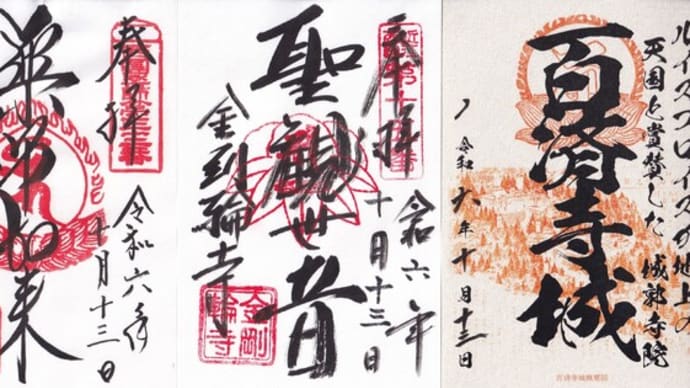 奉拝
令和六年
十月十三日
薬師如来
奉拝
令和六年
十月十三日
聖観世音
金剛輪寺
金剛
輪寺
ルイスフロイスが地上の
天国と賞賛した 城郭寺院
百済寺城
令和六年十月十三日